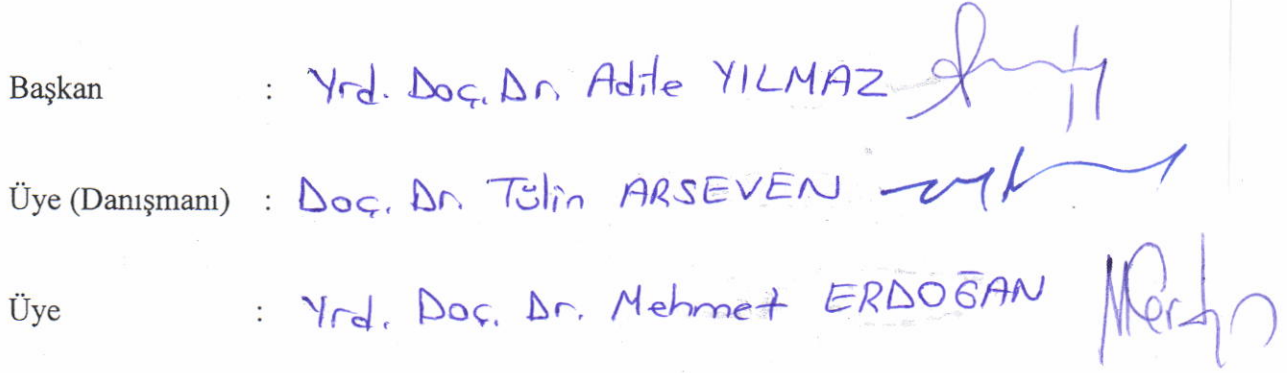 Başkan : Yrd. Doç. Dr. Adile YILMAZ
Üye (Danışmanı) : Doç. Dr. Tülin ARSEVEN
Üye : Yrd. Doç. Dr. Mehmet ERDOĞAN